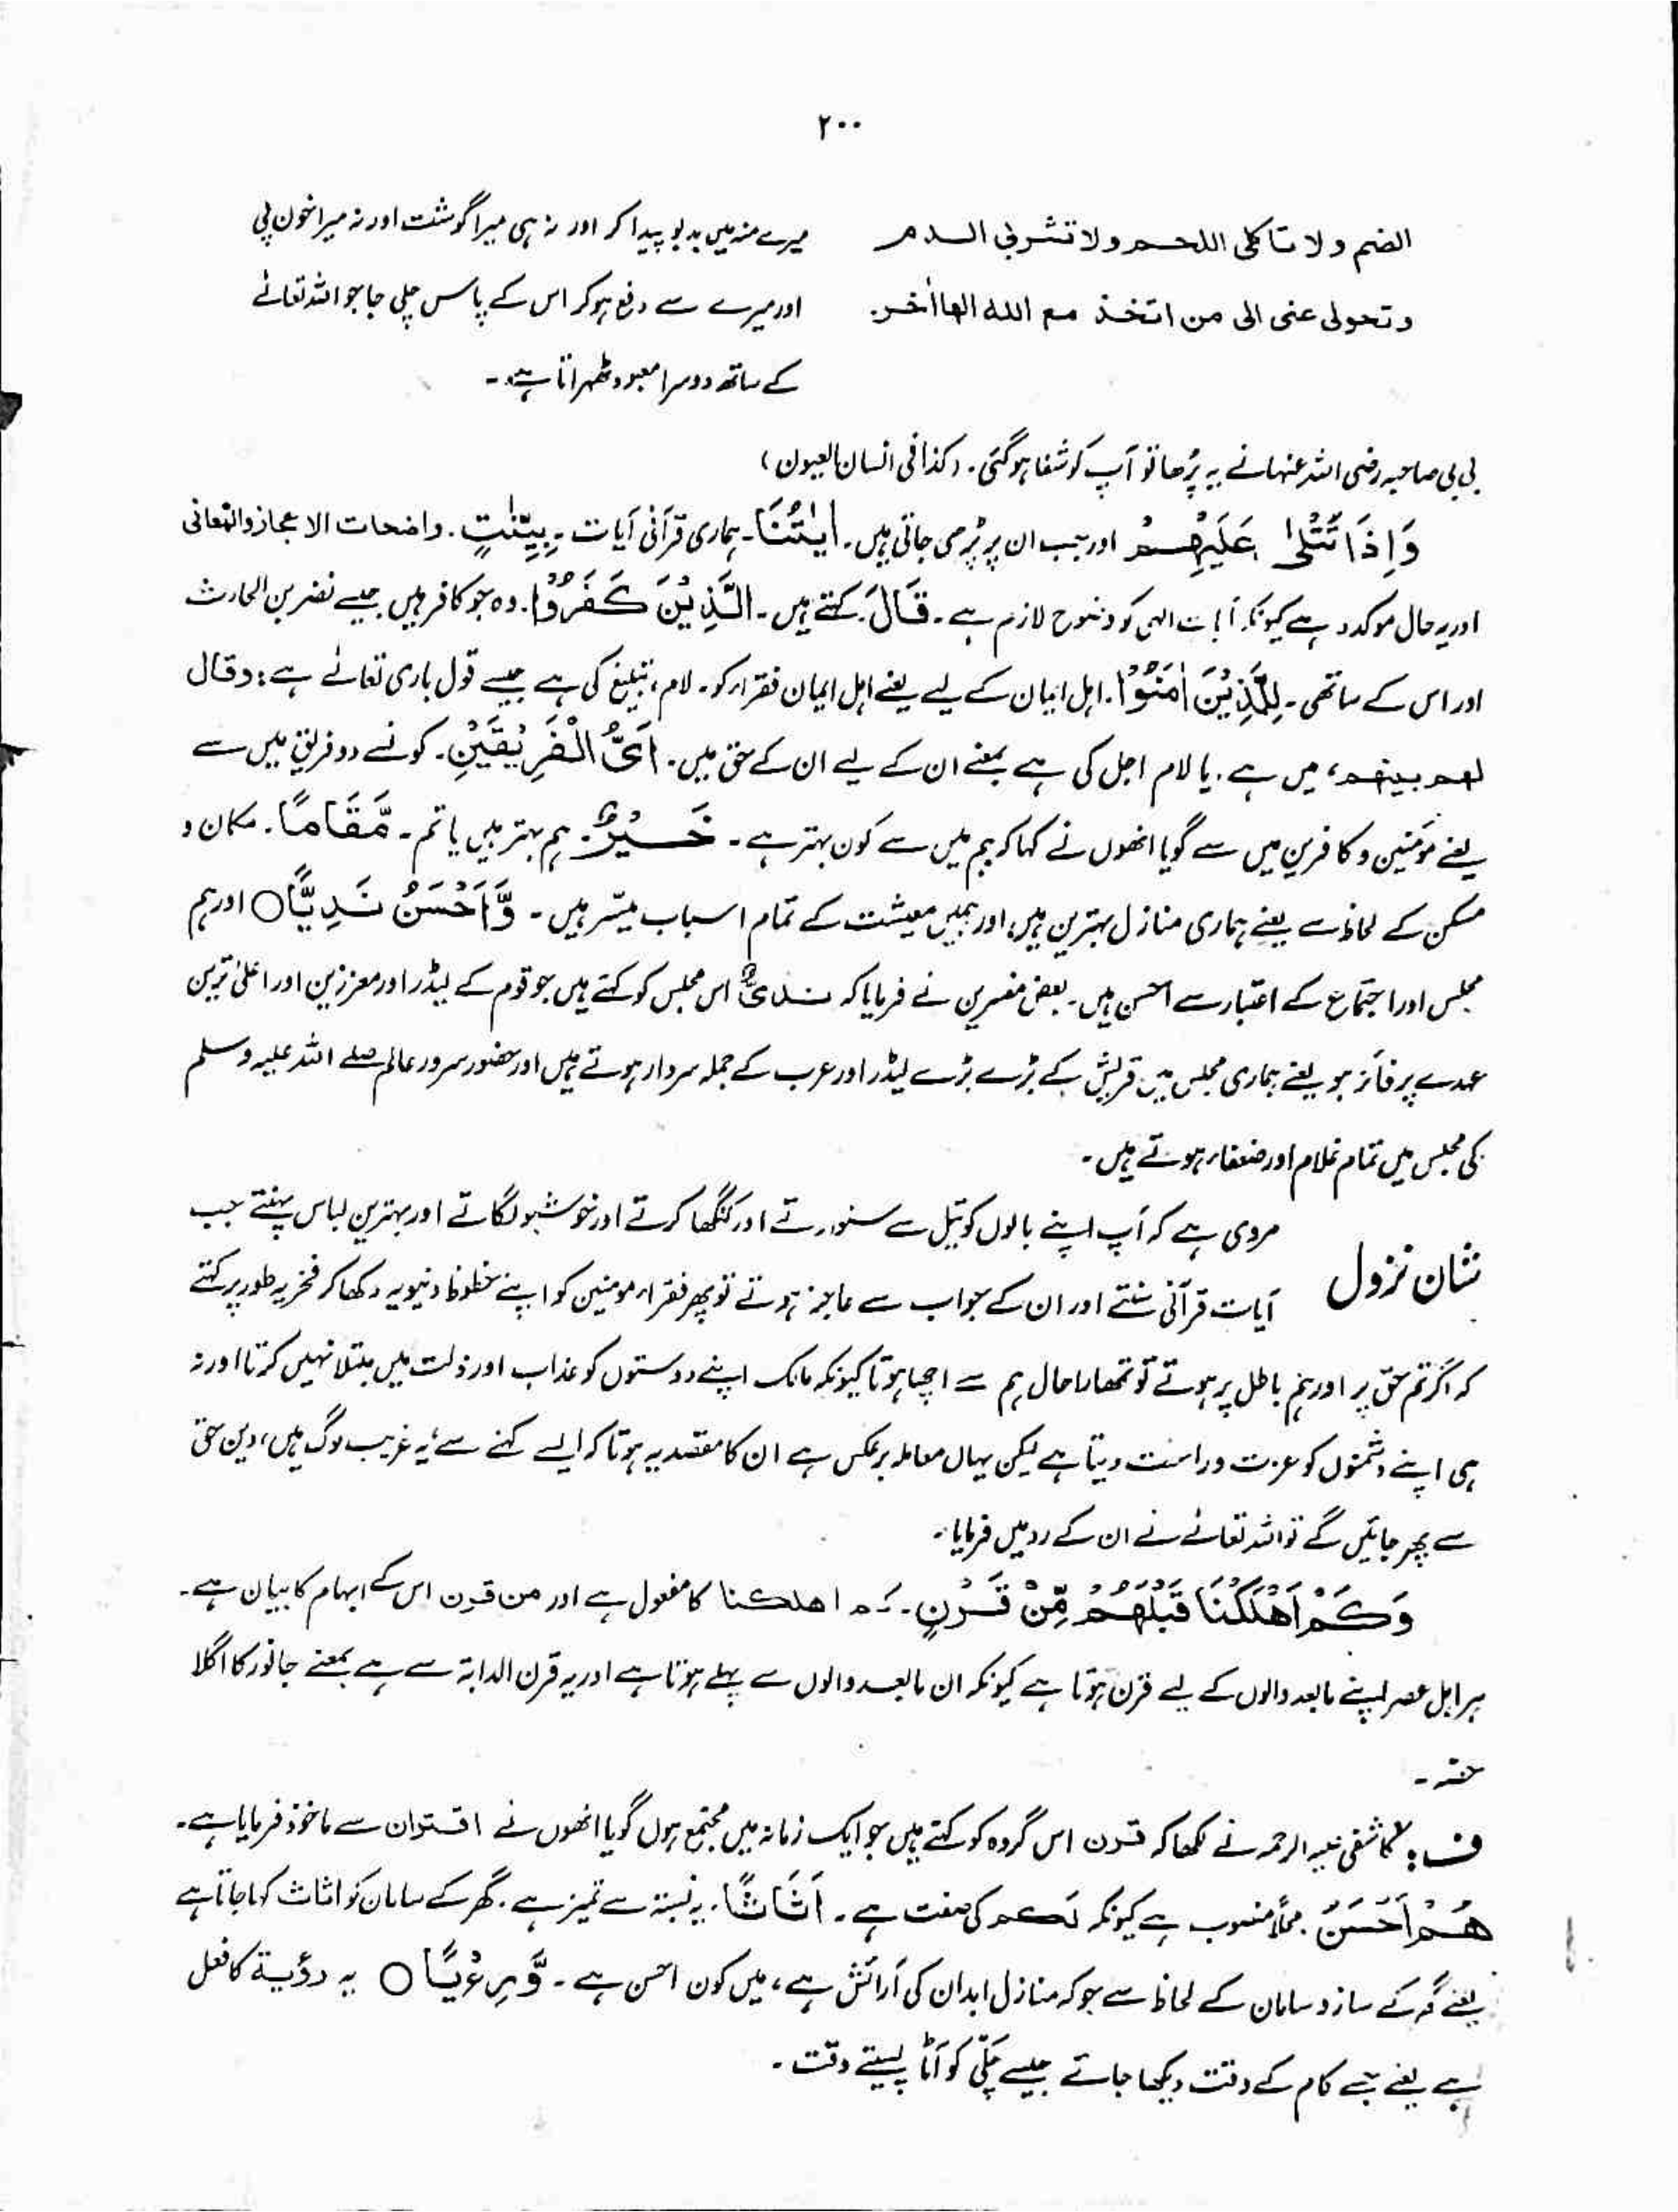 ۲۰۰
الضم ولا تاکلی اللحم ولا تشربی الدم
وتحولی عنی الی من اتخذ مع اللہ الھا اٰخر۔
میرے منہ میں بدبو پیدا کر اور نہ ہی میرا گوشت اور نہ میرا خون پی
اور میرے سے دفع ہو کر اس کے پاس چلی جا جو اللہ تعالےٰ
کے ساتھ دوسرا معبود ٹھہراتا ہے۔
بی بی صاحبہ رضی اللہ عنہا نے یہ پڑھا تو آپ کو شفا ہو گئی۔ (کذا فی انسان العیون)
وَاِذَا تُتْلٰی عَلَیْھِمْ اور جب ان پر پڑھی جاتی ہیں۔ اٰیٰتُنَا۔ ہماری قرآنی آیات۔ بَیِّنٰتٍ۔ واضحات الاعجاز والمعانی
اور یہ حال موکدہ ہے کیونکہ آیات الٰہی کو وضوح لازم ہے۔ قَالَ۔ کہتے ہیں۔ الَّذِیْنَ کَفَرُوْا۔ وہ جو کافر ہیں جیسے نضر بن الحارث
اور اس کے ساتھی۔ لِلَّذِیْنَ اٰمَنُوْا۔ اہل ایمان کے لیے یعنے اہل ایمان فقراء کو۔ لام، تبلیغ کی ہے جیسے قول باری تعالےٰ ہے: وقال
لھم بینھم، میں ہے۔ یا لام اجل کی ہے بمعنے ان کے لیے ان کے حق میں۔ اَیُّ الْفَرِیْقَیْنِ۔ کونسے دو فریق میں سے
یعنے مومنین و کافرین میں سے گویا انھوں نے کہا کہ ہم میں سے کون بہتر ہے۔ خَیْرٌ۔ ہم بہتر ہیں یا تم۔ مَّقَامًا۔ مکان و
مسکن کے لحاظ سے یعنے ہماری منازل بہترین ہیں، اور ہمیں معیشت کے تمام اسباب میسّر ہیں۔ وَّاَحْسَنُ نَدِیًّا○ اور ہم
مجلس اور اجتماع کے اعتبار سے احسن ہیں۔ بعض مفسرین نے فرمایا کہ ندیٌّ اس مجلس کو کہتے ہیں جو قوم کے لیڈر اور معززین اور اعلیٰ ترین
عہدے پر فائز ہو یعنے ہماری مجلس میں قریش کے بڑے بڑے لیڈر اور عرب کے جملہ سردار ہوتے ہیں اور حضور سرور عالم صلے اللہ علیہ وسلم
کی مجلس میں تمام غلام اور ضعفاء ہوتے ہیں۔
شان نزول
مروی ہے کہ آپ اپنے بالوں کو تیل سے سنوارتے اور کنگھا کرتے اور خوشبو لگاتے اور بہترین لباس پہنتے جب
آیات قرآنی سنتے اور ان کے جواب سے عاجز ہوتے تو پھر فقراء مومنین کو اپنے حظوظ دنیویہ دکھا کر فخریہ طور پر کہتے
کہ اگر تم حق پر اور ہم باطل پر ہوتے تو تمھارا حال ہم سے اچھا ہوتا کیونکہ مالک اپنے دوستوں کو عذاب اور ذلت میں مبتلا نہیں کرتا اور نہ
ہی اپنے دشمنوں کو عزت و راحت دیتا ہے لیکن یہاں معاملہ برعکس ہے ان کا مقصد یہ ہوتا کہ ایسے کہنے سے یہ غریب لوگ ہیں، دین حق
سے پھر جائیں گے تو اللہ تعالےٰ نے ان کے رد میں فرمایا۔
وَکَمْ اَھْلَکْنَا قَبْلَھُمْ مِّنْ قَرْنٍ۔ کم اھلکنا کا مفعول ہے اور من قرن اس کے ابہام کا بیان ہے۔
ہر اہل عصر اپنے مابعد والوں کے لیے قرن ہوتا ہے کیونکہ ان مابعد والوں سے پہلے ہوتا ہے اور یہ قرن الدابۃ سے ہے بمعنے جانور کا اگلا
حصہ۔
ف: کاشفی علیہ الرحمہ نے لکھا کہ قرن اس گروہ کو کہتے ہیں جو ایک زمانہ میں مجتمع ہوں گویا انھوں نے اقتران سے ماخوذ فرمایا ہے۔
ھُمْ اَحْسَنُ۔ محلاً منصوب ہے کیونکہ لکم کی صفت ہے۔ اَثَاثًا۔ یہ نسبۃ سے تمیز ہے۔ گھر کے سامان کو اثاث کہا جاتا ہے
یعنے گھر کے ساز و سامان کے لحاظ سے جو کہ منازل ابدان کی آرائش ہے، میں کون احسن ہے۔ وَّرِءْیًا○ یہ رؤیۃ کا فعل
ہے یعنے جسے کام کے وقت دیکھا جائے جیسے چکّی کو آٹا پیستے وقت۔